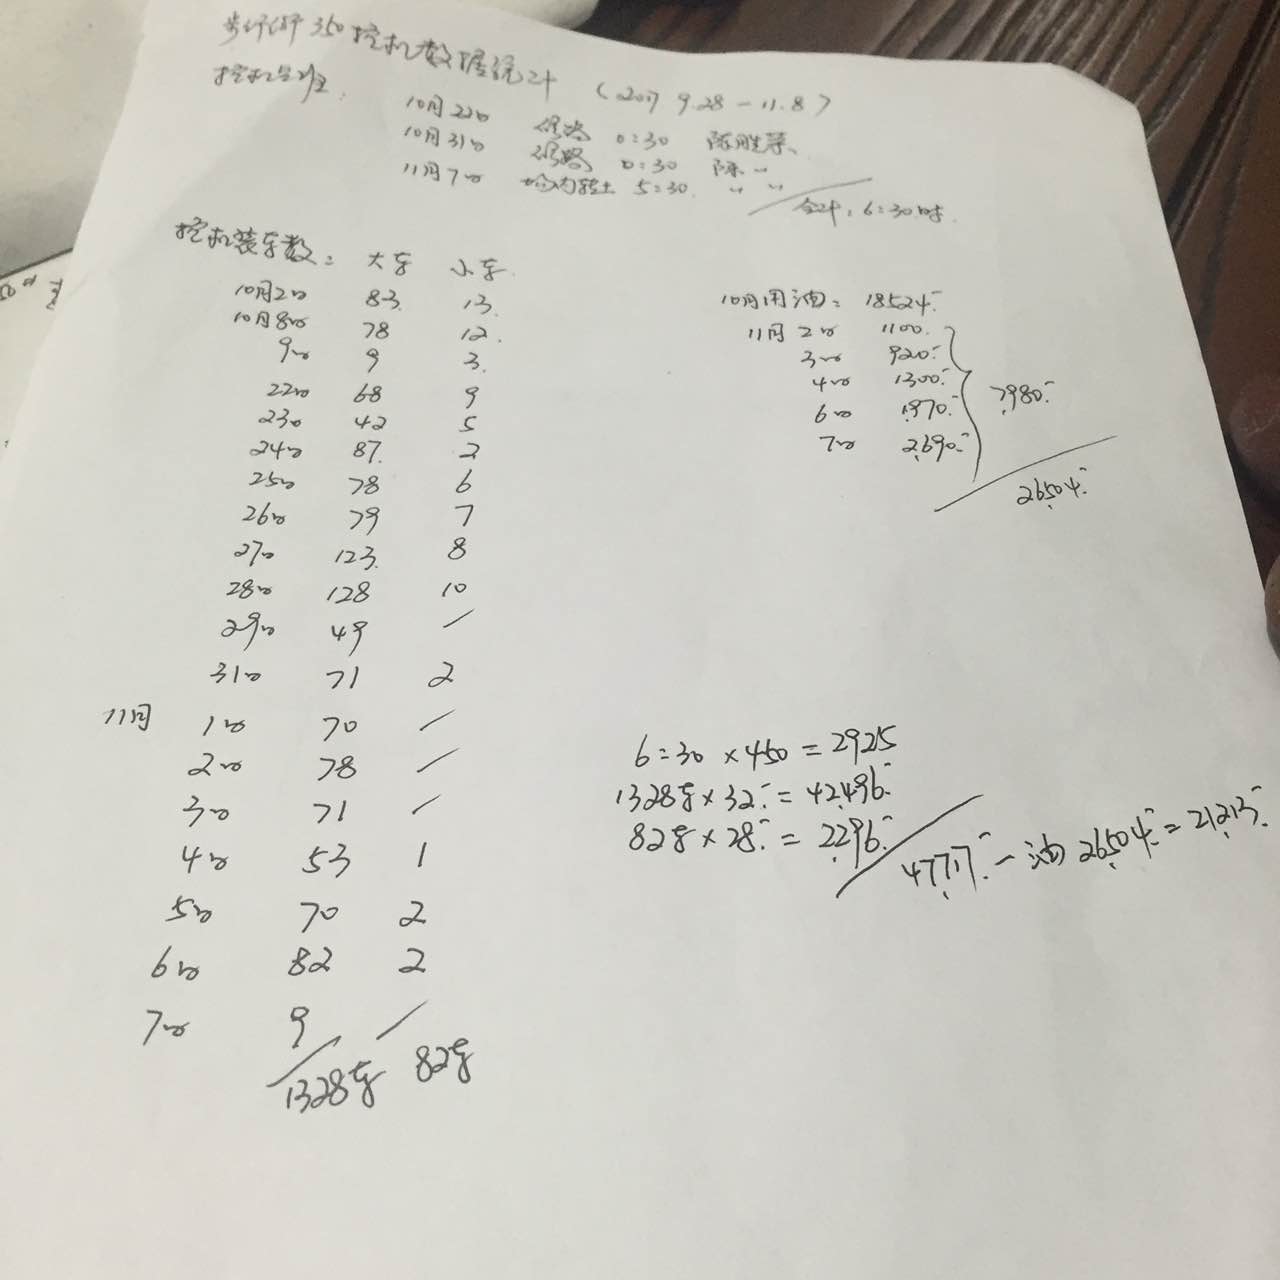 350挖机数据统计 (2017 9.28-11.8)
挖机台班:
10月22日 修路 0:30 陈胜荣、
10月31日 修路 0:30 陈 〃
11月7日 场内转土 5:30. 〃 〃
合计: 6:30时.
挖机装车数: 大车 小车.
10月2日 83. 13.
10月8日 78 12.
9日 9 3.
22日 68 9
23日 42 5
24日 87. 2
25日 78 6
26日 79 7
27日 123. 8
28日 128 10
29日 49 /
31日 71 2
11月 1日 70 /
2日 78 /
3日 71 /
4日 53 1
5日 70 2
6日 82 2
7日 9 /
1328车 82车
10月用油: 18524.-
11月2日 1100.-
3日 920.-
4日 1300.-
6日 1970.-
7日 2690.-
7980.-
26504.-
6:30 × 450 = 2925
1328车 × 32.- = 42496.-
82车 × 28.- = 2296.-
47717.- - 油 26504.- = 21213.-